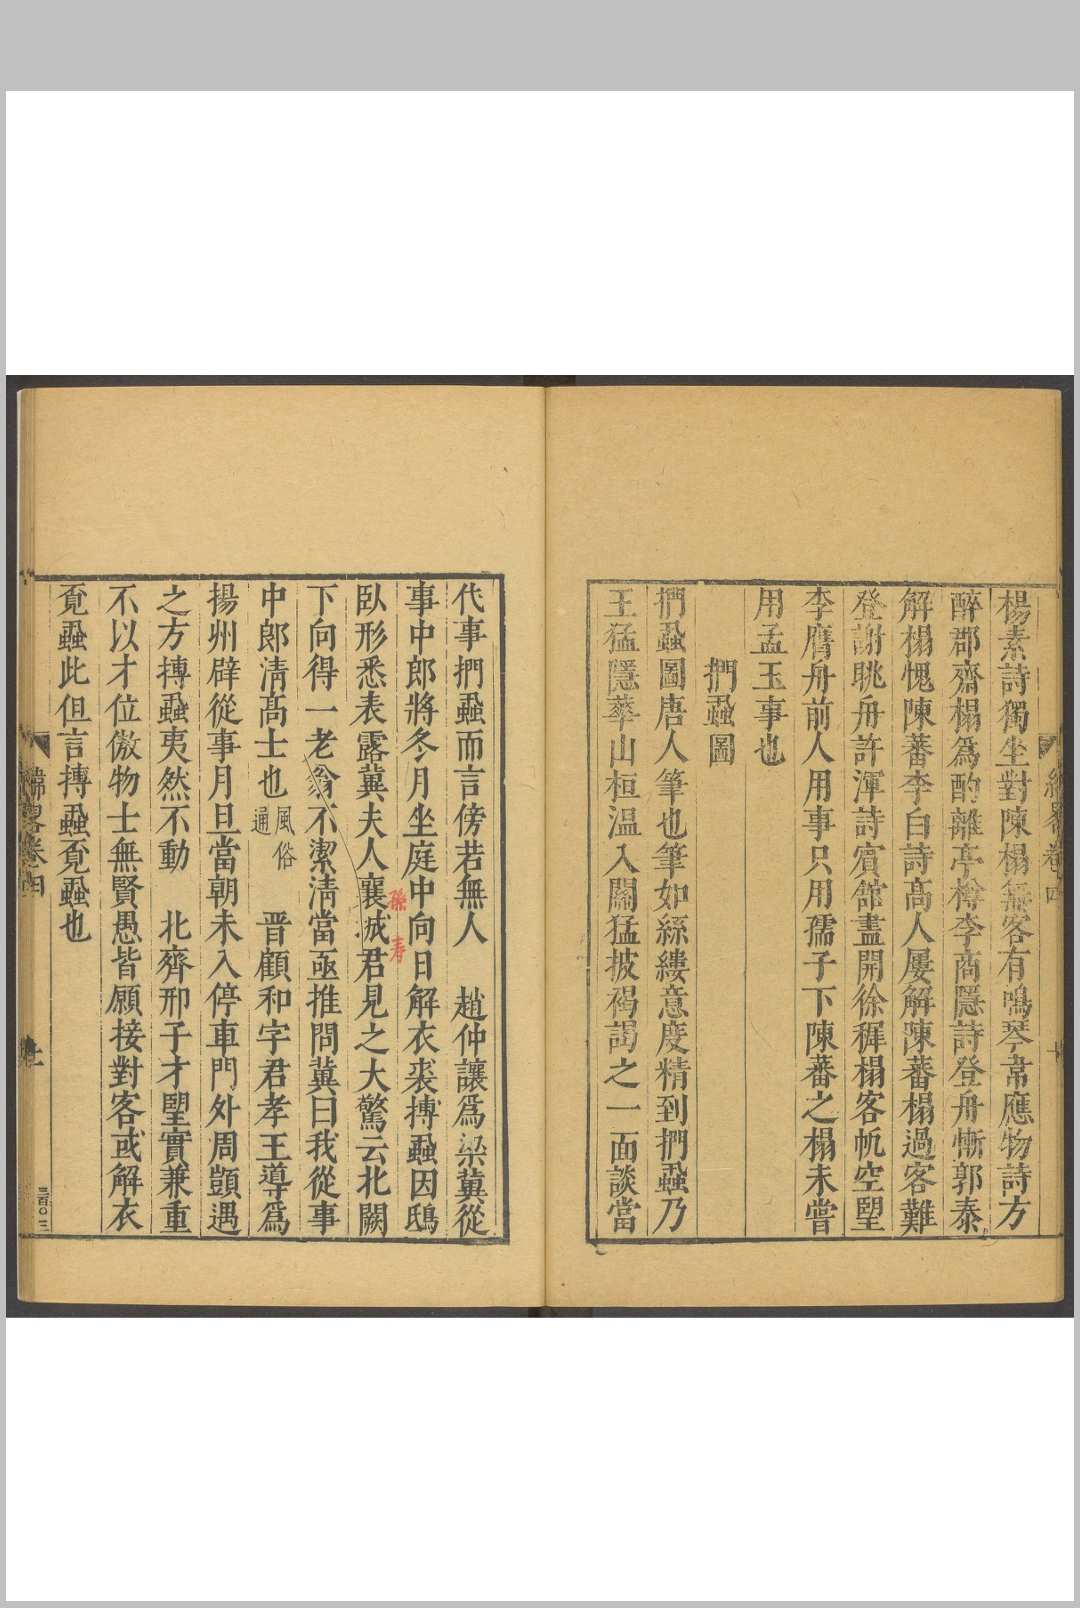 緯畧卷四 十
楊素詩獨坐對陳榻無客有鳴琴韋應物詩方
醉郡齋榻爲酌離亭樽李商隱詩登舟慚郭泰
解榻愧陳蕃李白詩高人屢解陳蕃榻過客難
登謝眺舟許渾詩賓館盡開徐穉榻客帆空望
李膺舟前人用事只用孺子下陳蕃之榻未嘗
用孟玉事也
捫蝨圖
捫蝨圖唐人筆也筆如絲縷意度精到捫蝨乃
王猛隱華山桓温入關猛披褐謁之一面談當
代事捫蝨而言傍若無人　趙仲讓爲梁冀從
事中郎將冬月坐庭中向日解衣裘搏蝨因鴟
孫壽
臥形悉表露冀夫人襄城君見之大驚云北闕
下向得一老翁不潔淸當亟推問冀曰我從事
中郎淸高士也風俗通　晋顧和字君孝王導爲
揚州辟從事月旦當朝未入停車門外周顗遇
之方搏蝨夷然不動　北齊邢子才望實兼重
不以才位傲物士無賢愚皆願接對客或解衣
覓蝨此但言搏蝨覓蝨也
緯畧卷四 三百〇三